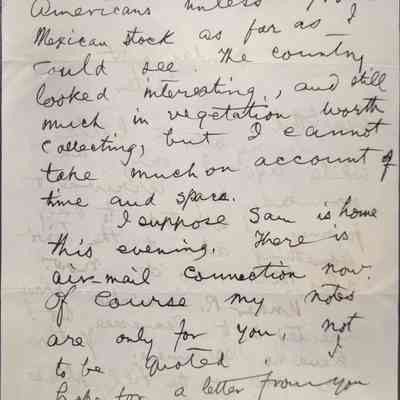 Americans unless
Mexican stock as far as I
could see. The country
looked interesting, and still
much in vegetation worth
collecting, but I cannot
take much on account of
time and space.
I suppose Sam is home
this evening. There is
air-mail connection now.
Of course my notes
are only for you, not
to be quoted. I
hope for a letter from you